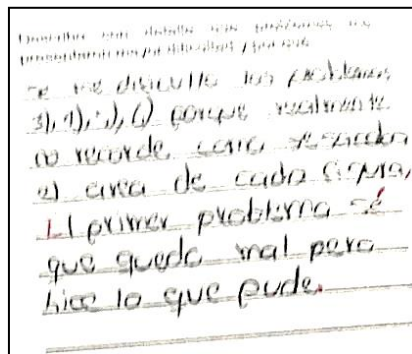 se me dificulto los problemas
3), 4), 5), 6) porque realmente
no recorde como se sacaba
el area de cada figura,
El primer problema sé
que quedo mal pero
hice lo que pude.